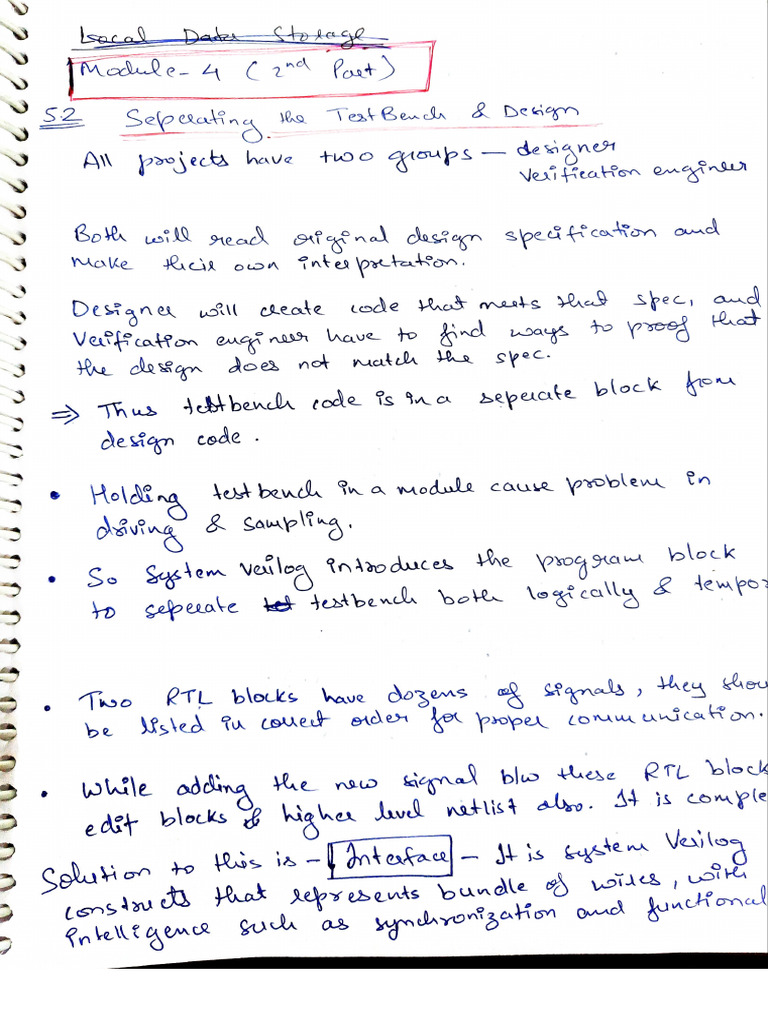 Local Data Storage
Module-4 (2nd Part)
5.2 Seperating the TestBench & Design
All projects have two groups — designer
verification engineer
Both will read original design specification and
make their own interpretation.
Designer will create code that meets that spec, and
Verification engineer have to find ways to proof that
the design does not match the spec.
⇒ Thus testbench code is in a seperate block from
design code.
• Holding testbench in a module cause problem in
driving & sampling.
• So System Verilog introduces the program block
to seperate testbench both logically & tempo
• Two RTL blocks have dozens of signals, they shou
be listed in correct order for proper communication.
• While adding the new signal b/w these RTL block
edit blocks & higher level netlist also. It is comple
Solution to this is - Interface - It is system Verilog
constructs that represents bundle of wires, with
intelligence such as synchronization and functional